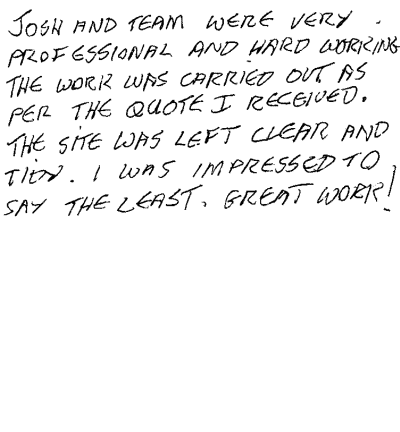 JOSH AND TEAM WERE VERY.
PROFESSIONAL AND HARD WORKING
THE WORK WAS CARRIED OUT AS
PER THE QUOTE I RECEIVED.
THE SITE WAS LEFT CLEAR AND
TIDY. I WAS IMPRESSED TO
SAY THE LEAST. GREAT WORK!